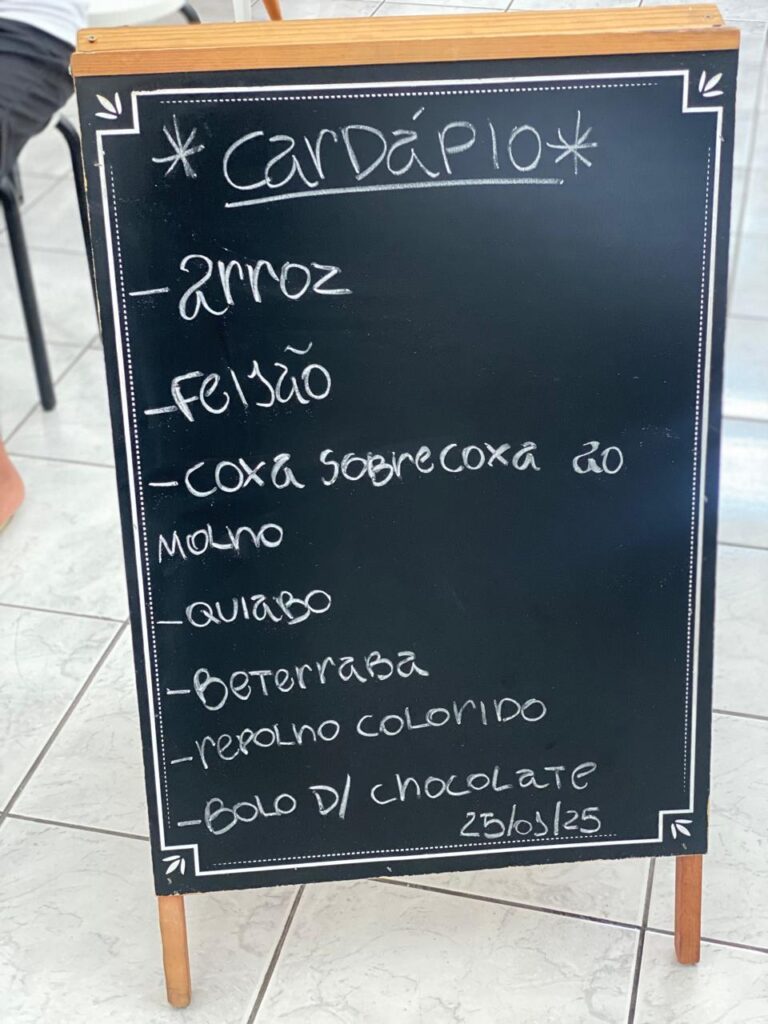 * CarDáPIO *
- arroz
- Feijão
- COXA SOBrECOXA ao
MOLHO
- QUIABO
- BeTerraBA
- rePOLHO COLOrIDO
- BOLO D/ CHOCOLATE